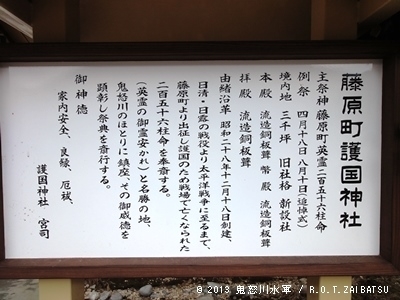 藤原町護国神社
主祭神 藤原町英霊二百五十六柱命
例祭 四月十八日 八月十日(追悼式)
境内地 三千坪 旧社格 新設社
本殿 流造銅板葺 幣殿 流造銅板葺
拝殿 流造銅板葺
由緒沿革 昭和二十八年十二月十八日創建、
日清・日露の戦役より太平洋戦争に至るまで、
藤原町より出征し護国のため戦場で亡くなられた
二百五十六柱命を奉斎する。
(英霊の御霊安かれ)と名勝の地、
鬼怒川のほとりに鎮座、その御威徳を
顕彰し祭典を斎行する。
御神徳
家内安全、良縁、厄祓、
護国神社 宮司
© 2013 鬼怒川水軍 / R.O.T.ZAIBATSU